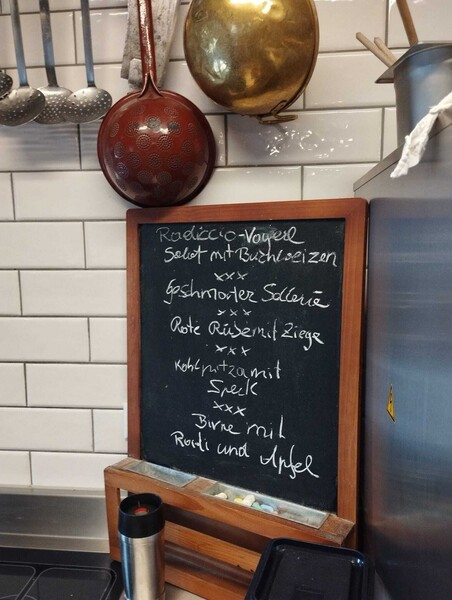 Radiccio-Vogerl
Salat mit Buchweizen
xxx
geschmorter Sellerie
xxx
Rote Rübe mit Ziege
xxx
Kohlpizza mit
Speck
xxx
Birne mit
und Apfel